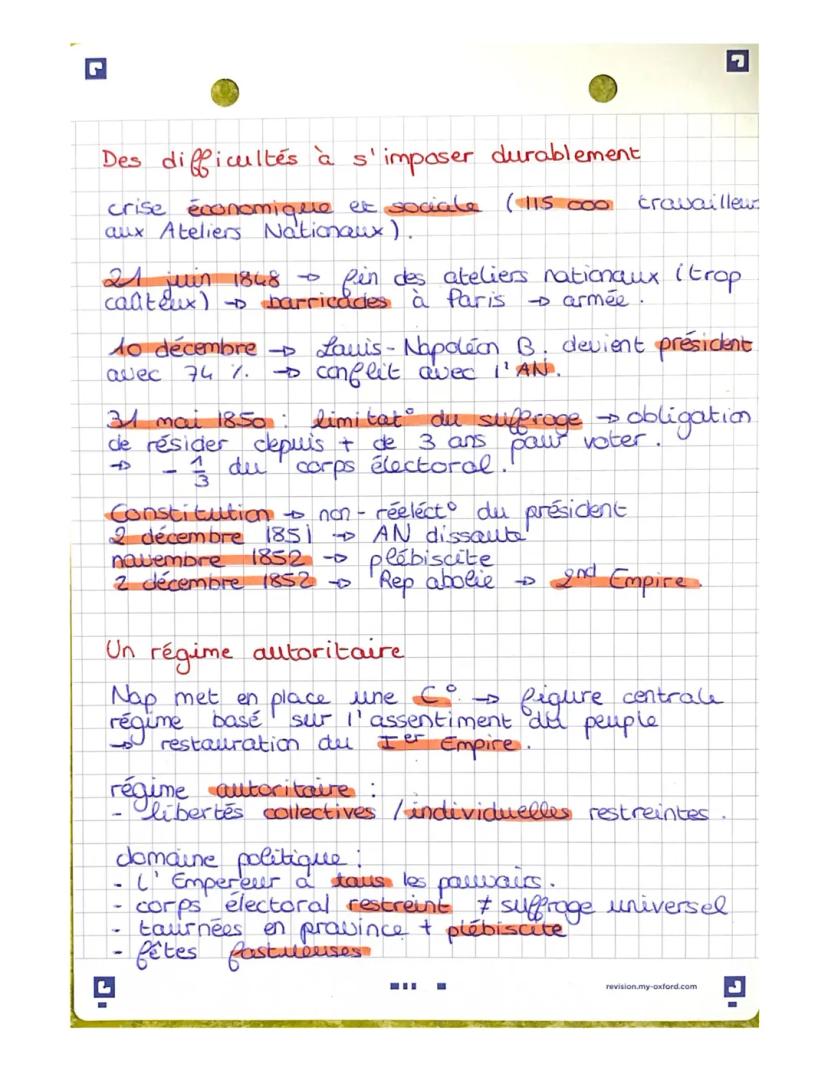 Des difficultés à s'imposer durablement
crise économique et sociale (115 000 travailleurs
aux Ateliers Nationaux).
21 juin 1848 → fin des ateliers nationaux (trop
coûteux) → barricades à Paris → armée.
10 décembre → Louis-Napoléon B. devient président
avec 74 %. → conflit avec l'AN.
31 mai 1850 : limitat° du suffrage → obligation
de résider depuis + de 3 ans pour voter.
→ - 1/3 du corps électoral.
Constitution → non-réélect° du président
2 décembre 1851 → AN dissoute
novembre 1852 → plébiscite
2 décembre 1852 → Rep abolie → 2nd Empire.
Un régime autoritaire
Nap met en place une C° → figure centrale
régime basé sur l'assentiment du peuple
→ restauration du Ier Empire.
régime autoritaire :
- libertés collectives / individuelles restreintes.
domaine politique :
- L'Empereur a tous les pouvoirs.
- corps électoral restreint ≠ suffrage universel
- tournées en province + plébiscite
- fêtes fastueuses
revision.my-oxford.com